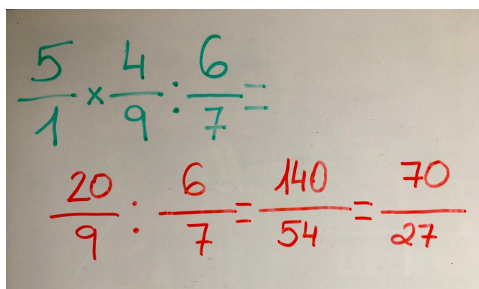 5/1 × 4/9 : 6/7 =
20/9 : 6/7 = 140/54 = 70/27